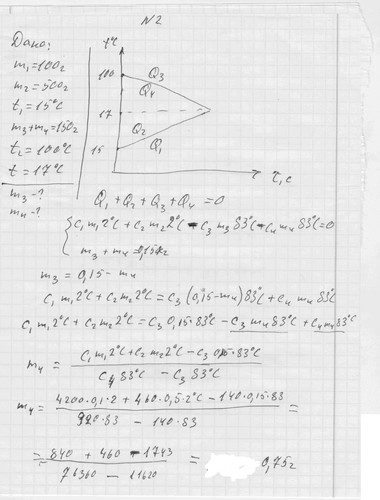 N2
Дано:
m₁=100г
m₂=500г
t₁=15°C
m₃+m₄=150г
t₂=100°C
t=17°C
m₃-?
m₄-?
t°C
100
17
15
Q₃
Q₄
Q₂
Q₁
τ,c
Q₁+Q₂+Q₃+Q₄=0
c₁m₁2°C+c₂m₂2°C-c₃m₃83°C-c₄m₄83°C=0
m₃+m₄=0,15кг
m₃=0,15-m₄
c₁m₁2°C+c₂m₂2°C=c₃(0,15-m₄)83°C+c₄m₄83°C
c₁m₁2°C+c₂m₂2°C=c₃0,15·83°C-c₃m₄83°C+c₄m₄83°C
m₄ = (c₁m₁2°C+c₂m₂2°C-c₃0,15·83°C)/(c₄83°C-c₃83°C)
m₄=(4200·0,1·2+460·0,5·2°C-140·0,15·83)/(920·83-140·83)=
=(840+460-1743)/(76360-11620)= 0,75г